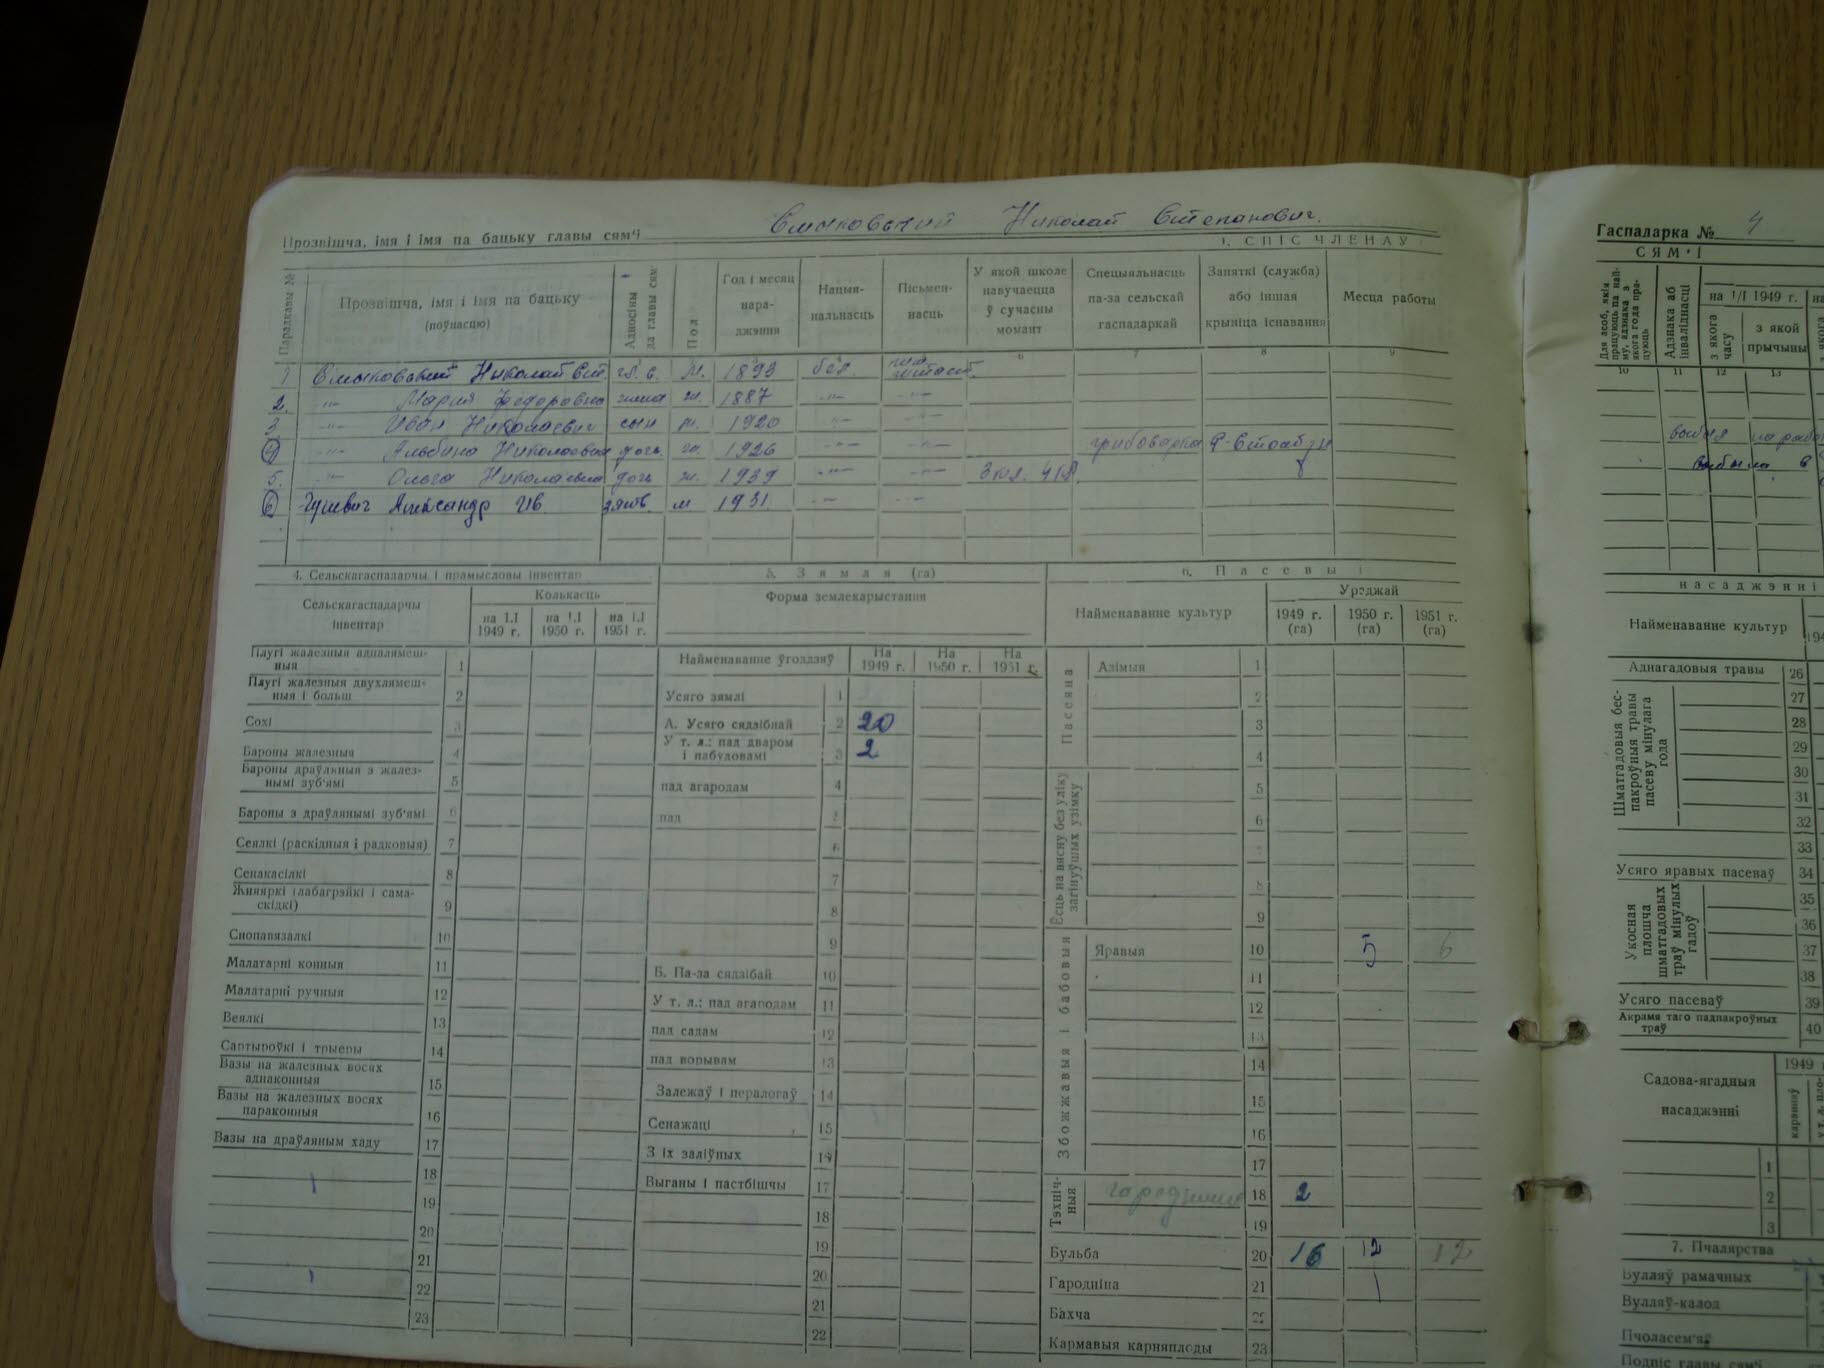 Прозвішча, імя і імя па бацьку главы сям'і Николай Степанович.
1. СПІС ЧЛЕНАЎ
Парадкавы №
Прозвішча, імя і імя па бацьку (поўнасцю)
Адносіны да главы сям'і
Пол
Год і месяц нара-джэння
Нацыя-нальнасць
Пісьмен-насць
У якой школе навучаецца ў сучасны момант
Спецыяльнасць па-за сельскай гаспадаркай
Заняткі (служба) або іншая крыніца існавання
Месца работы
6 7 8 9
1 Николай Ст. гл. с. м. 1893 бел.
2. -"- Мария Федоровна жена ж. 1887 -"- -"-
3 -"- Иван Николаевич сын м. 1920 -"- -"-
4 -"- Альбина Николаевна дочь ж. 1926 -"- -"- грибоварка
5. -"- Ольга Николаевна дочь ж. 1939 -"- -"- 3 кл.
6 Александр Ив. зять м 1931. -"- -"-
4. Сельскагаспадарчы і прамысловы інвентар
Сельскагаспадарчы інвентар
Колькасць
на 1.I 1949 г.
на 1.I 1950 г.
на 1.I 1951 г.
Плугі жалезныя адналямеш-ныя 1
Плугі жалезныя двухлямеш-ныя і больш 2
Сохі 3
Бароны жалезныя 4
Бароны драўляныя з жалез-нымі зуб'ямі 5
Бароны з драўлянымі зуб'ямі 6
Сеялкі (раскідныя і радковыя) 7
Сенакасілкі 8
Жняяркі (лабагрэйкі і сама-скідкі) 9
Снопавязалкі 10
Малатарні конныя 11
Малатарні ручныя 12
Веялкі 13
Сартыроўкі і трыеры 14
Вазы на жалезных восях аднаконныя 15
Вазы на жалезных восях параконныя 16
Вазы на драўляным хаду 17
18
19
20
21
22
23
5. Зямля (га)
Форма землекарыстання
Найменаванне ўгоддзяў
На 1949 г.
На 1950 г.
На 1951 г.
Усяго зямлі 1
А. Усяго сядзібнай 2 20
У т. л.: пад дваром і пабудовамі 3 2
пад агародам 4
пад 5
6
7
8
9
Б. Па-за сядзібай 10
У т. л.: пад агародам 11
пад садам 12
пад ворывам 13
Залежаў і пералогаў 14
Сенажаці 15
З іх заліўных 16
Выганы і пастбішчы 17
18
19
20
21
22
6. Пасевы і
Найменаванне культур
Ураджай
1949 г. (га)
1950 г. (га)
1951 г. (га)
Пасеяна
Азімыя 1
2
3
4
Ёсць на вясну без уліку загінуўшых узімку
5
6
7
8
9
Збожжавыя і бабовыя
Яравыя 10 5 6
11
12
13
14
15
16
17
Тэхніч-ныя
18 2
19
Бульба 20 16 12 12
Гародніна 21 1
Бахча 22
Кармавыя карняплоды 23
Гаспадарка № 4
СЯМ'І
Для асоб, якія працуюць па най-му, адзнака з якога года пра-цуюць
Адзнака аб інваліднасці
на 1/I 1949 г.
на
з якога часу
з якой прычыны
10 11 12 13
выбыл
выбыла в
насаджэнні
Найменаванне культур
Аднагадовыя травы 26
Шматгадовыя бес-пакроўныя травы пасеву мінулага года
27
28
29
30
31
32
33
Усяго яравых пасеваў 34
Укосная плошча шматгадовых траў мінулых гадоў
35
36
37
38
Усяго пасеваў 39
Акрамя таго падпакроўных траў 40
Садова-ягадныя насаджэнні
1949
1
2
3
7. Пчалярства
Вулляў рамачных
Вулляў-калод
Пчоласем'яў
Подпіс главы сям'і